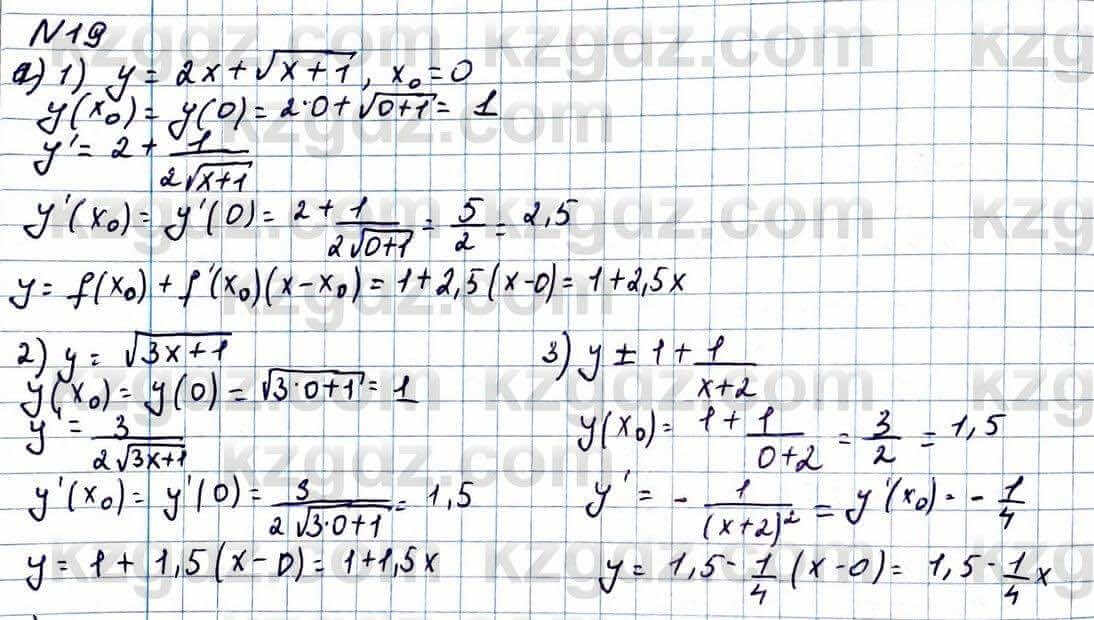 N19
a) 1) y = 2x + √(x+1), x₀ = 0
y(x₀) = y(0) = 2·0 + √(0+1) = 1
y' = 2 + 1/(2√(x+1))
y'(x₀) = y'(0) = 2 + 1/(2√(0+1)) = 5/2 = 2,5
y = f(x₀) + f'(x₀)(x-x₀) = 1+2,5(x-0) = 1+2,5x
2) y = √(3x+1)
y(x₀) = y(0) = √(3·0+1) = 1
y' = 3/(2√(3x+1))
y'(x₀) = y'(0) = 3/(2√(3·0+1)) = 1,5
y = 1 + 1,5(x-0) = 1+1,5x
3) y = 1 + 1/(x+2)
y(x₀) = 1 + 1/(0+2) = 3/2 = 1,5
y' = - 1/(x+2)² = y'(x₀) = - 1/4
y = 1,5 - 1/4 (x-0) = 1,5 - 1/4 x
kzgdz.com